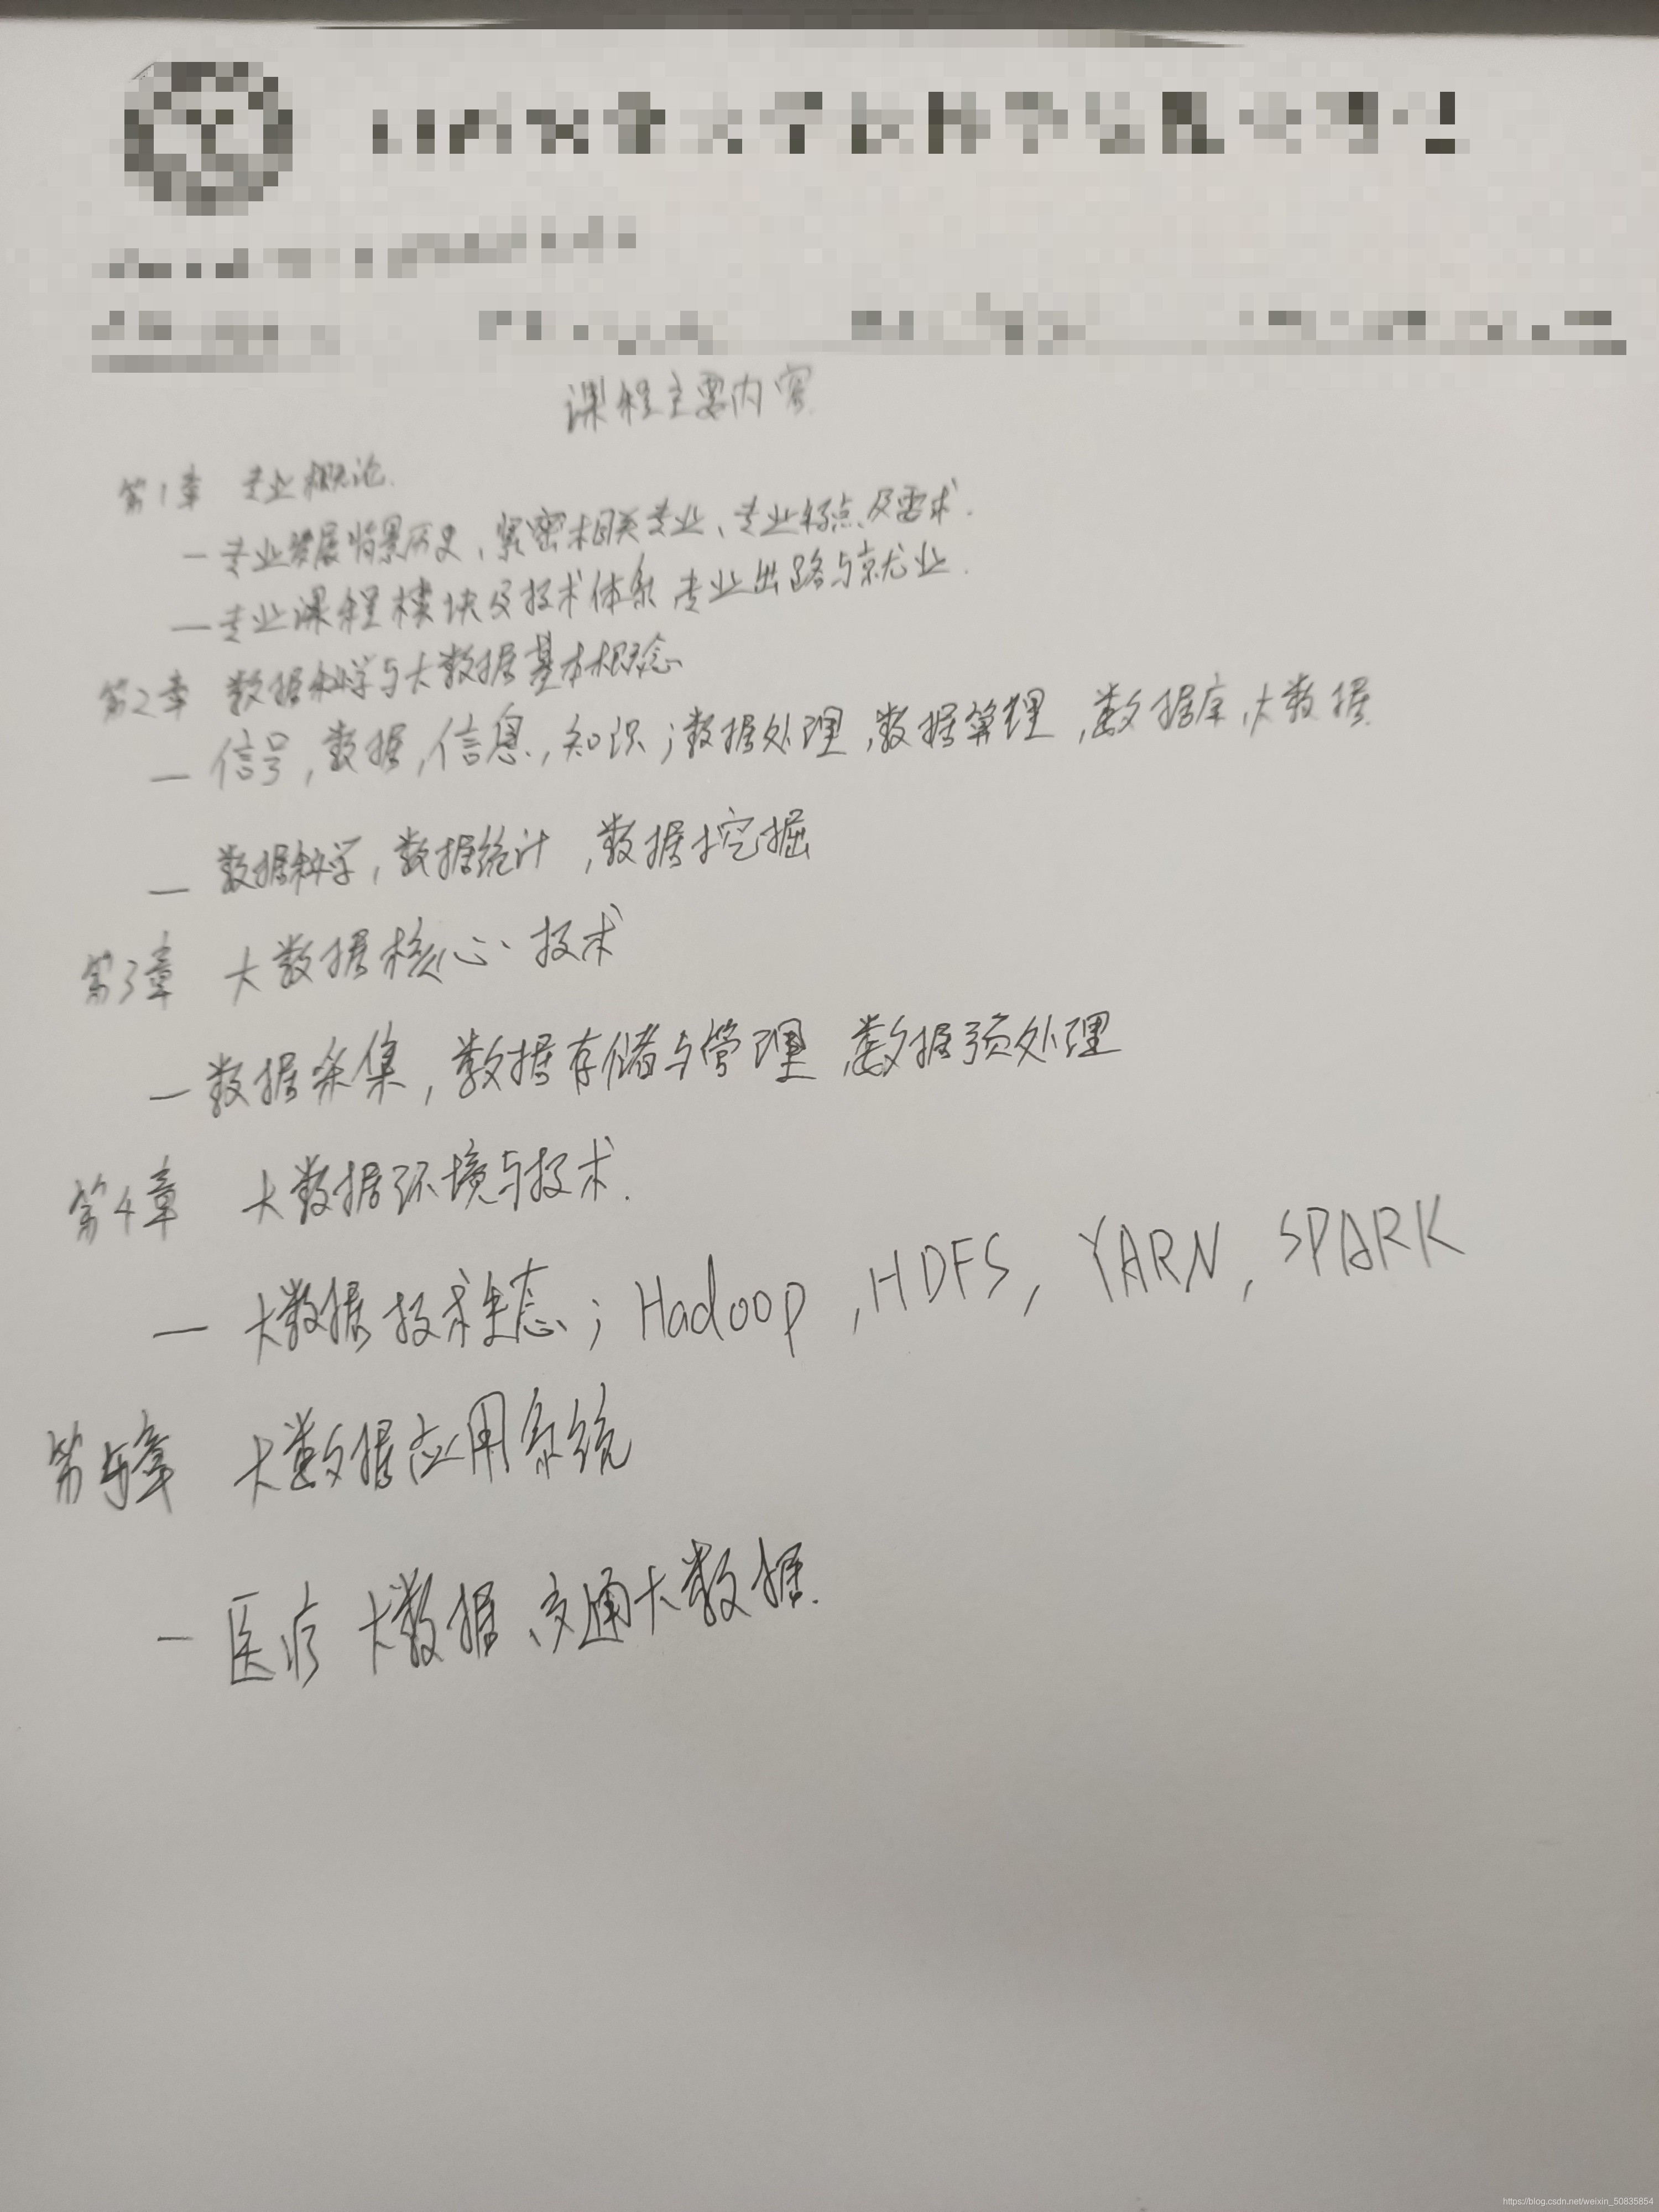 课程主要内容
第1章 专业概论.
—专业发展背景历史、紧密相关专业、专业特点及需求.
—专业课程模块及技术体系 专业出路与就业.
第2章 数据科学与大数据基本概念
—信号,数据,信息,知识;数据处理,数据管理,数据库,大数据
—数据科学,数据统计,数据挖掘
第3章 大数据核心技术
—数据采集,数据存储与管理,数据预处理
第4章 大数据环境与技术.
—大数据技术生态;Hadoop,HDFS,YARN,SPARK
第5章 大数据应用系统
—医疗大数据、交通大数据.
https://blog.csdn.net/weixin_50835854